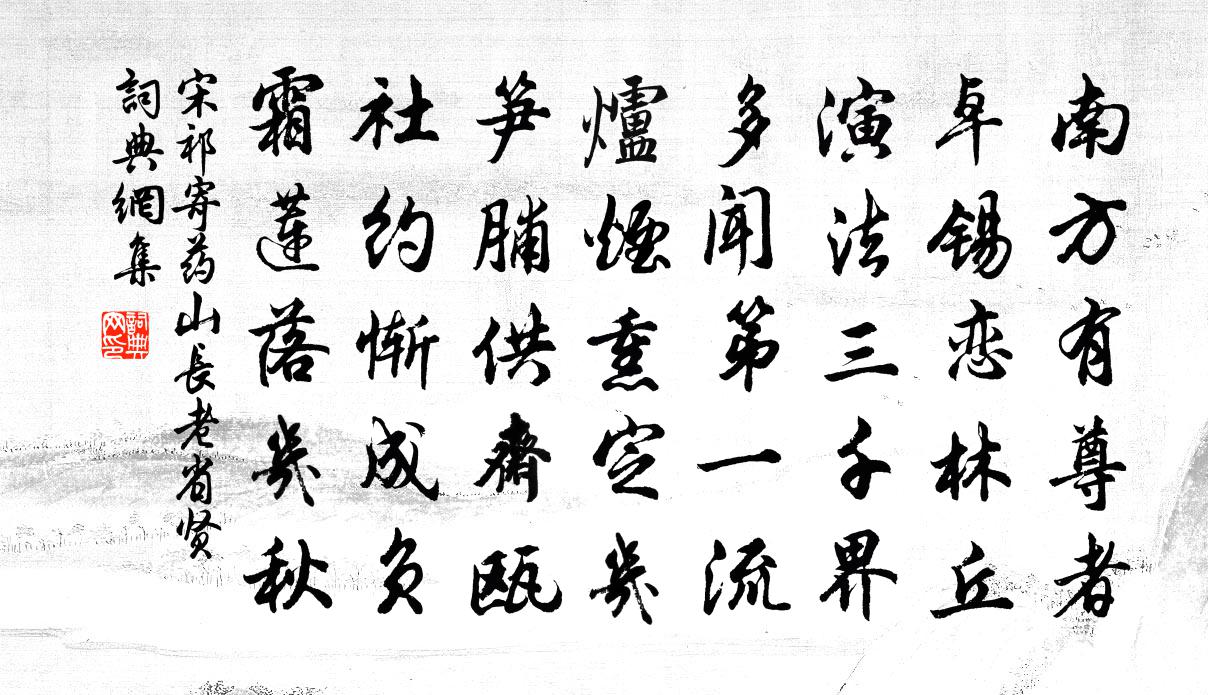 南方有尊者
卓锡恋林丘
演法三千界
多闻第一流
爐煙熏定幾
笋脯供齋瓯
社约惭成负
霜莲落幾秋
宋祁寄药山長老省贤
詞典網集
詞典网印